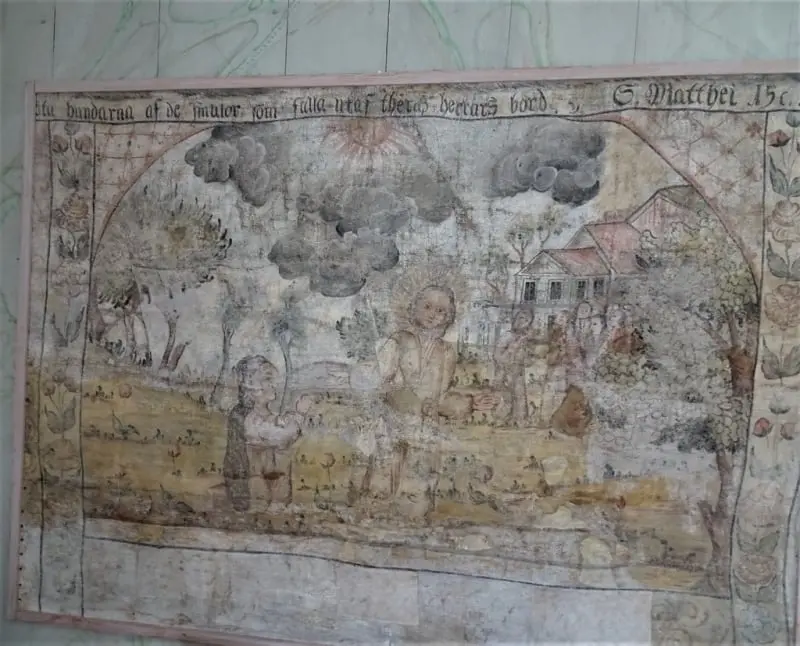 äta hundarna af de smulor som falla utaf theras herrars bord. S. Matthei .15 c.